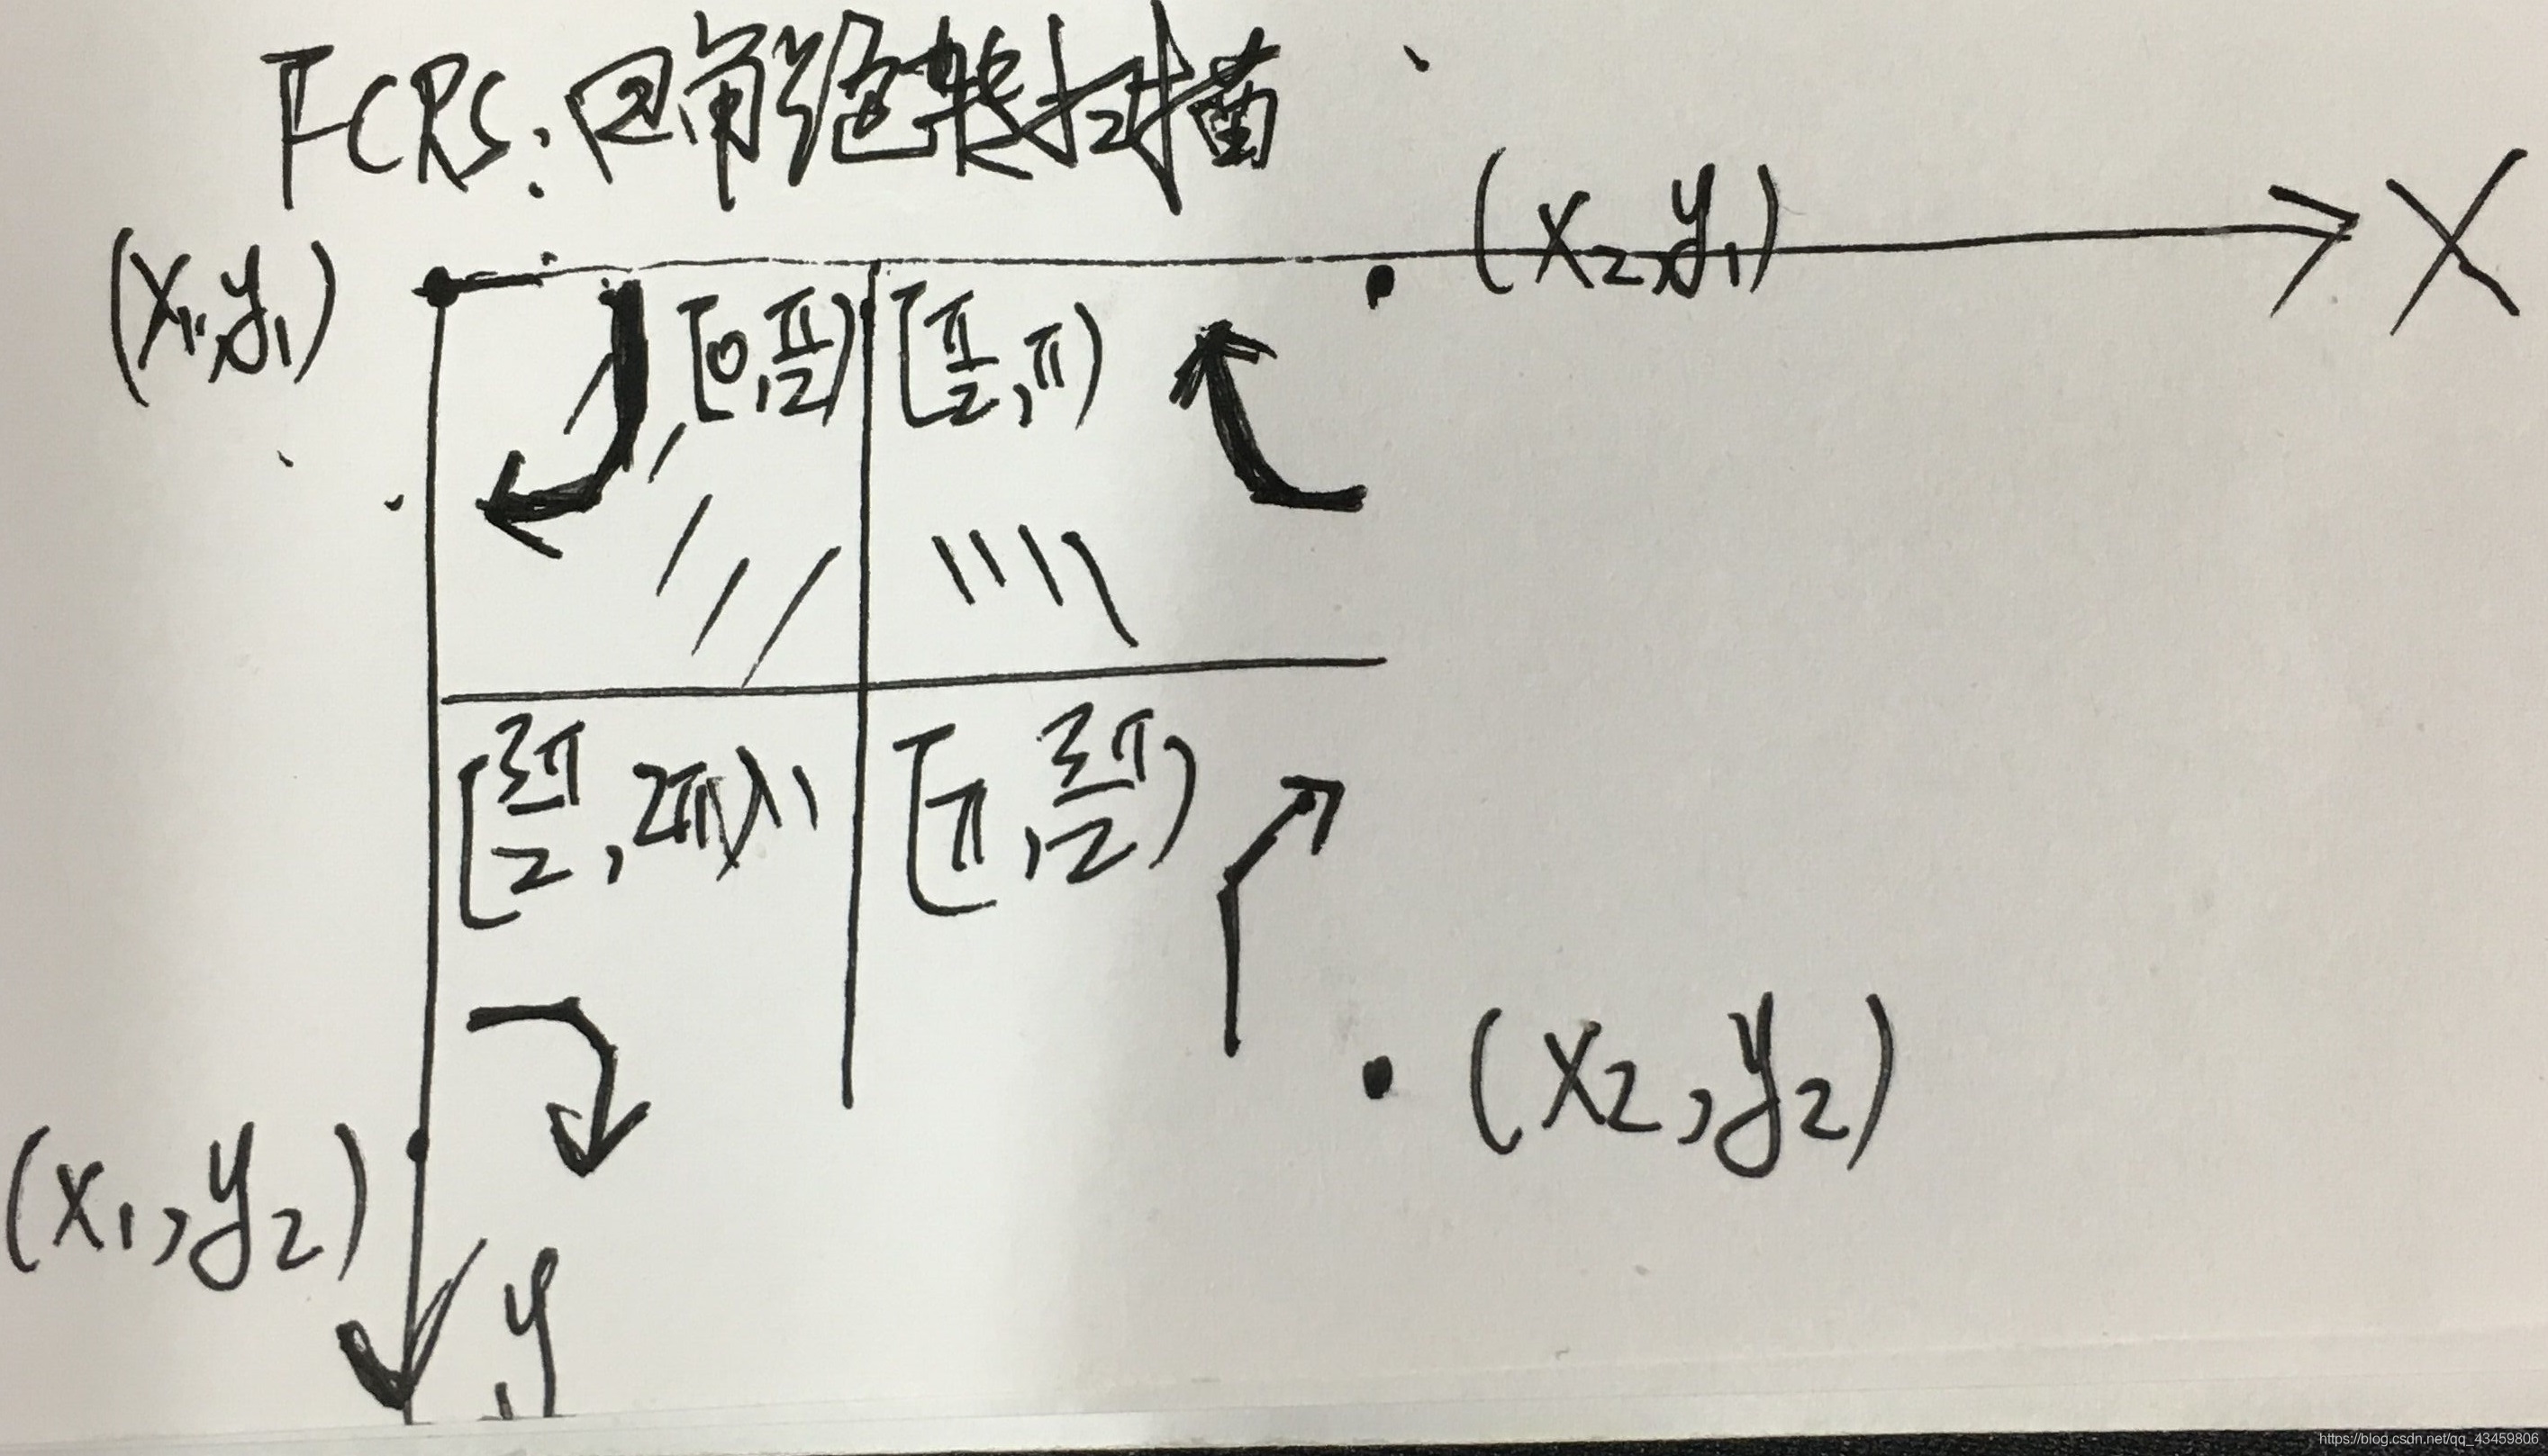 FCRS:四角绕转扫描
(x₁,y₁)
(x₂,y₁)
X
[0,π/2)
[π/2,π)
[3π/2,2π)
[π,3π/2)
(x₁,y₂)
(x₂,y₂)
y
https://blog.csdn.net/qq_43459806